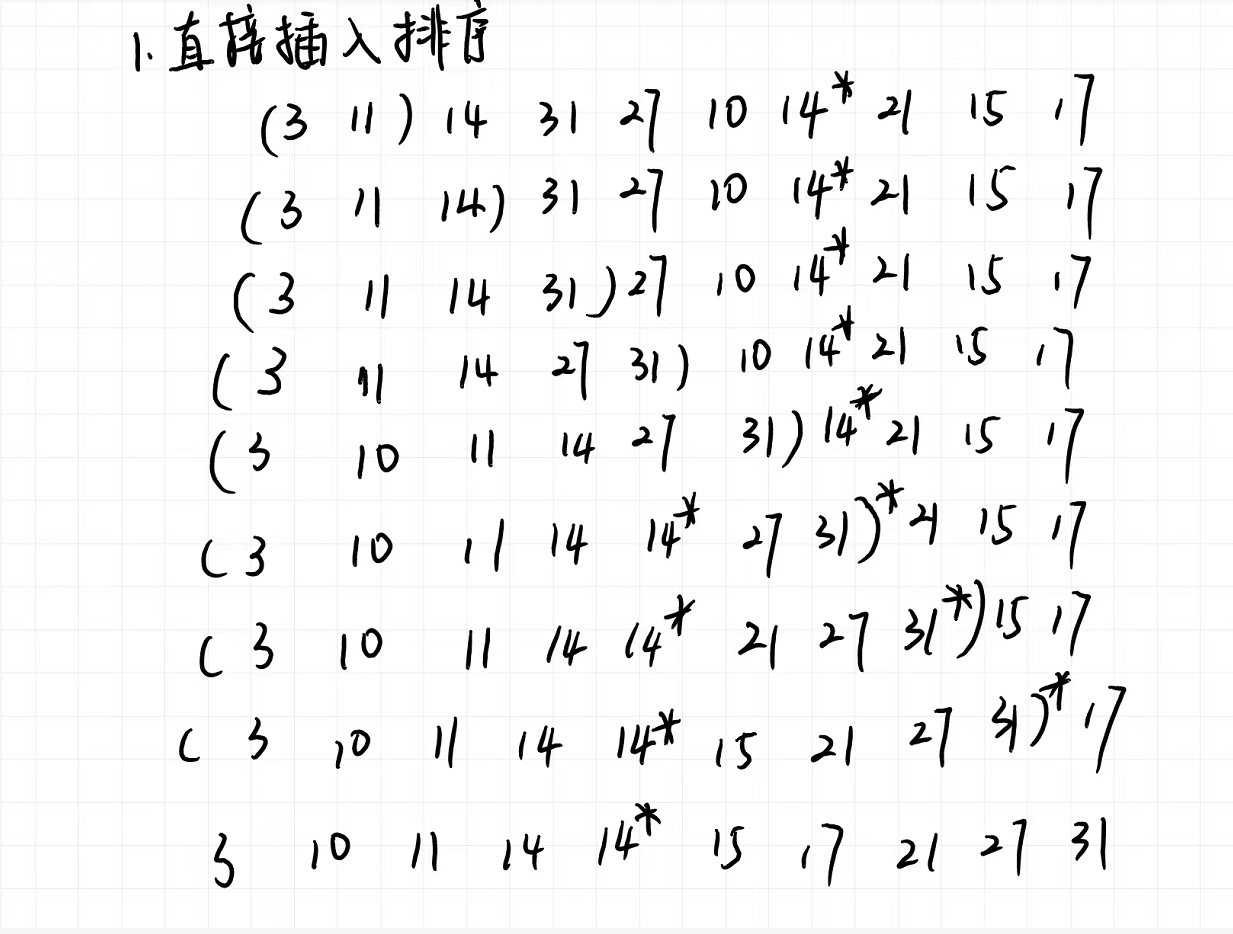 1. 直接插入排序
(3 11) 14 31 27 10 14* 21 15 17
(3 11 14) 31 27 10 14* 21 15 17
(3 11 14 31) 27 10 14* 21 15 17
(3 11 14 27 31) 10 14* 21 15 17
(3 10 11 14 27 31) 14* 21 15 17
(3 10 11 14 14* 27 31)* 21 15 17
(3 10 11 14 14* 21 27 31*) 15 17
(3 10 11 14 14* 15 21 27 31)* 17
3 10 11 14 14* 15 17 21 27 31